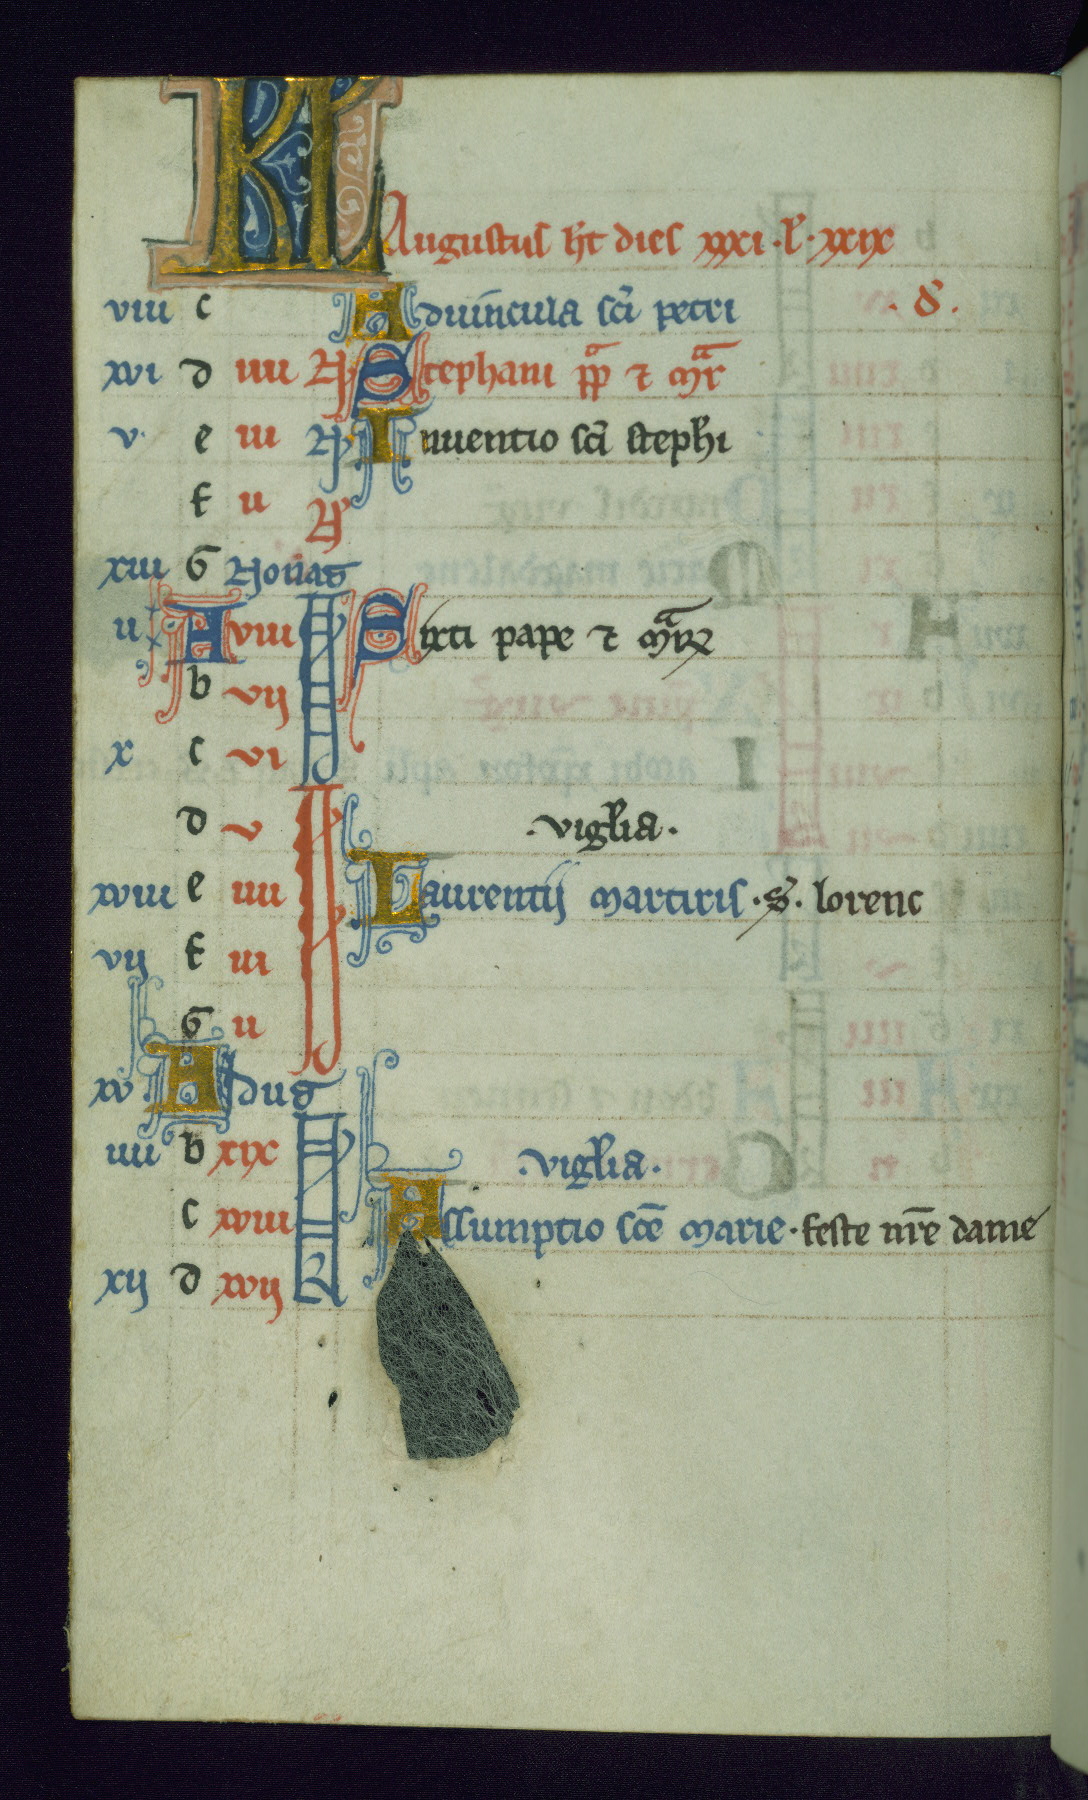 KL Augustus ht dies xxxi · l · xxix
viii c Ad vincula sci petri · d ·
xvi d iiii N Stephani pp a 7 mr
v e iii N Inventio sci stephi
f ii N
xiii G Nonas
ii A viii Id Sixti pape 7 mr
b vii
x c vi
d v · vigilia ·
xviii e iiii Laurentij martiris · s · lorenc
vij f iii
G ii
xv A Idus
iiii b xix · vigilia ·
c xviii Assumptio sce marie · feste nre dame
xij d xvij